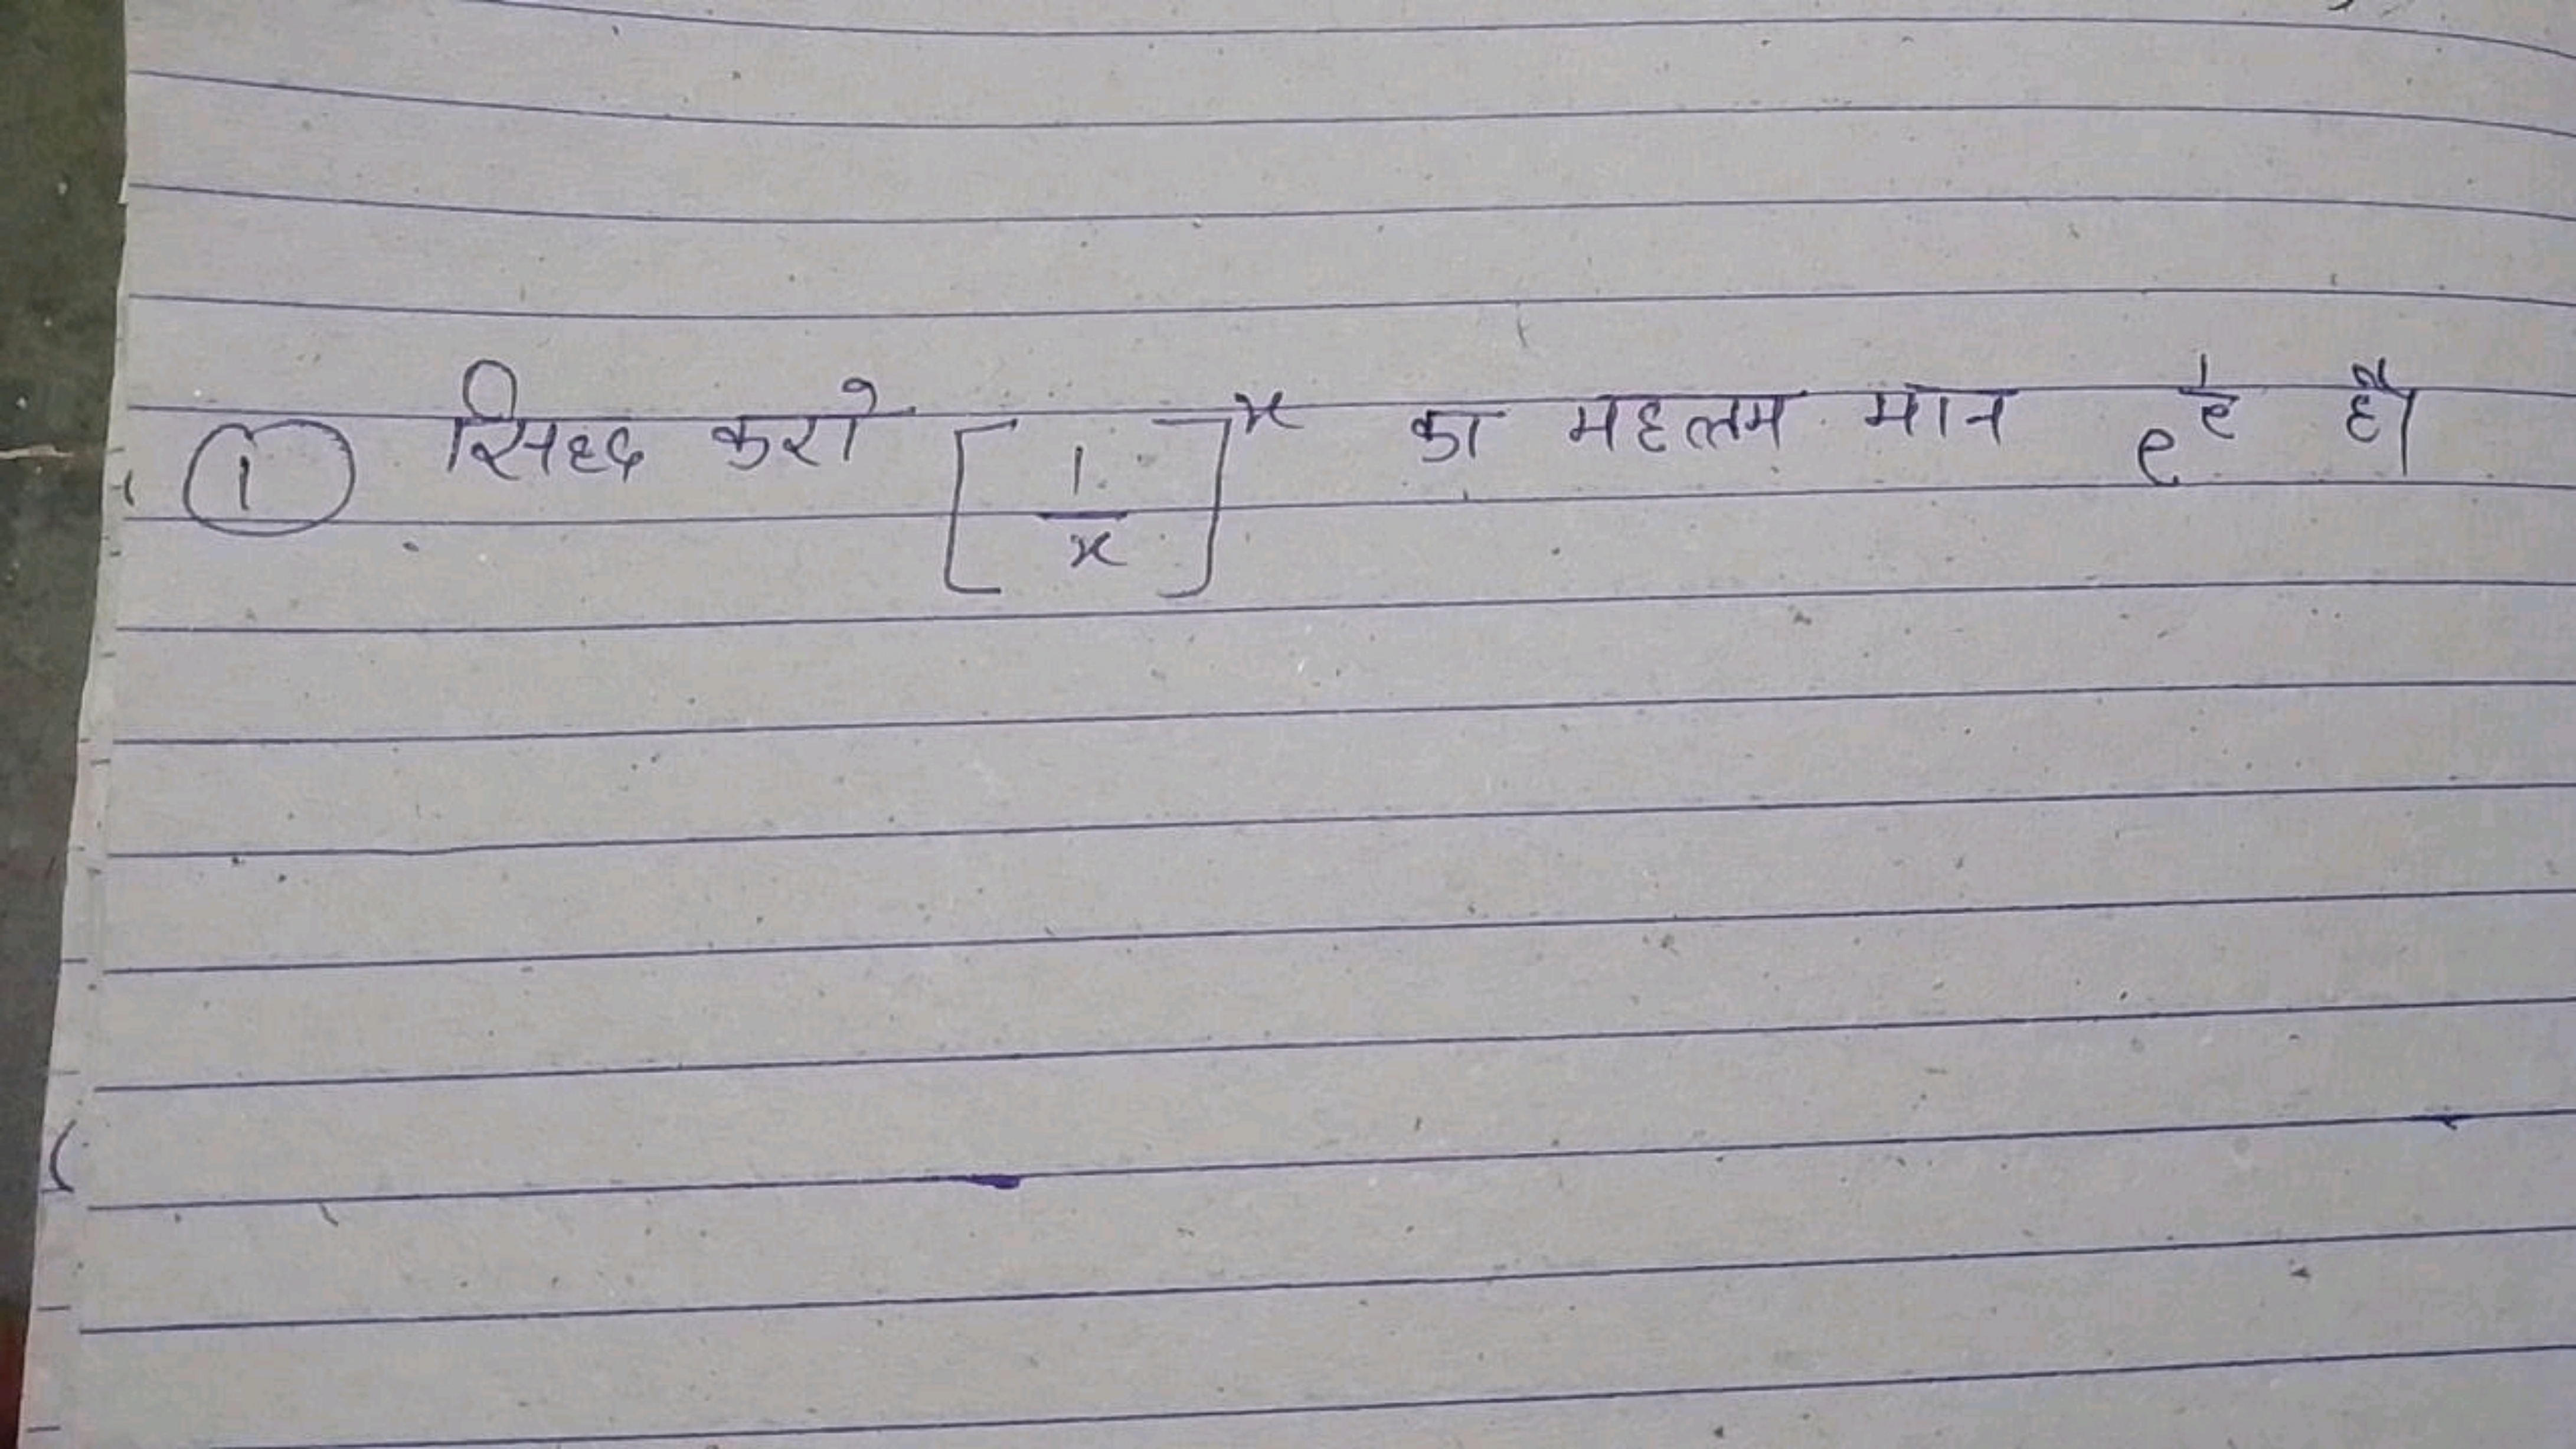 ① सिद्ध करो [1/x]^x का महत्तम मान e^(1/e) है।